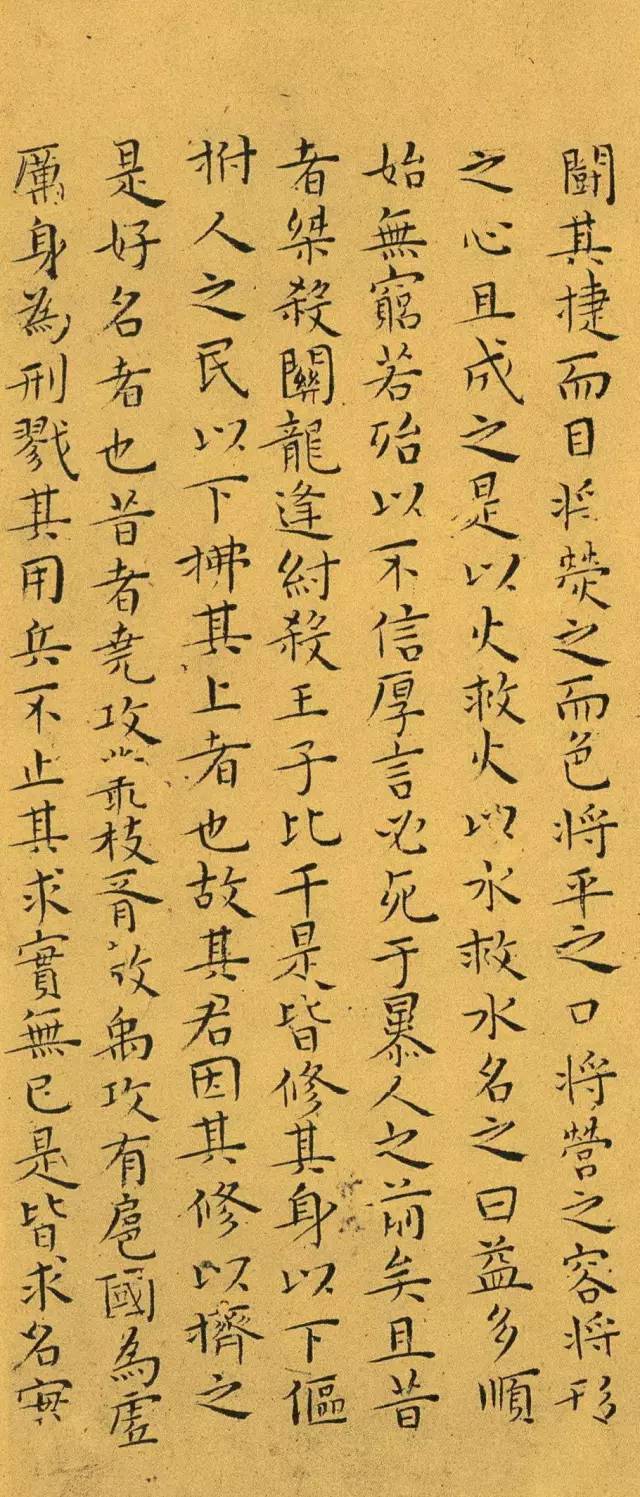 鬪其捷而目将熒之而色将平之口将營之容将形
之心且成之是以火救火以水救水名之曰益多順
始無窮若殆以不信厚言必死于暴人之前矣且昔
者桀殺關龍逢紂殺王子比干是皆修其身以下傴
拊人之民以下拂其上者也故其君因其修以擠之
是好名者也昔者堯攻叢枝胥敖禹攻有扈國為虛
厲身為刑戮其用兵不止其求實無已是皆求名實